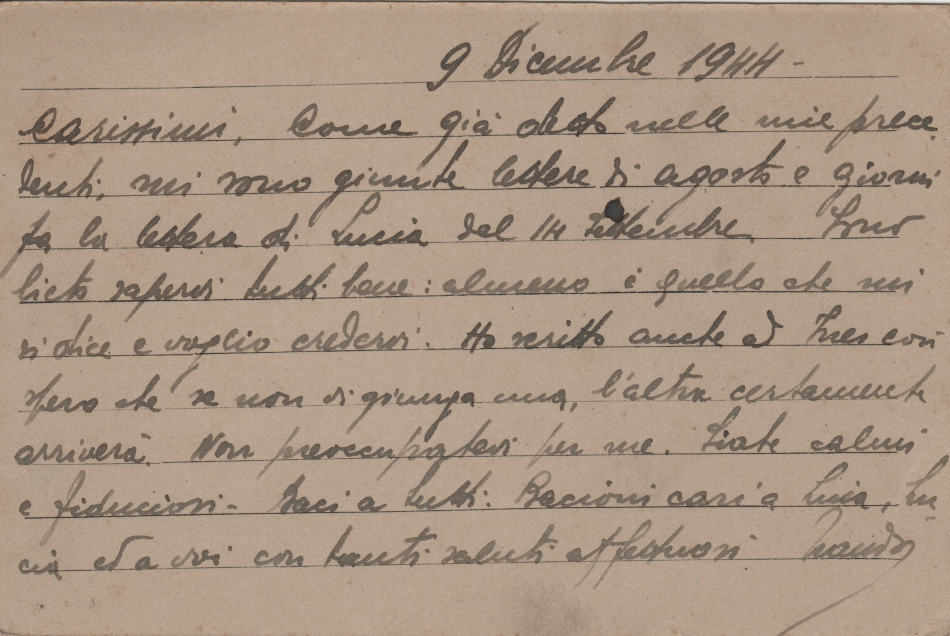 9 Dicembre 1944 -
Carissimi, Come già detto nelle mie prece
denti, mi sono giunte lettere di agosto e giorni
fa la lettera di Lucia del 14 Settembre. Sono
lieto sapervi tutti bene: almeno è quello che mi
si dice e voglio credervi. Ho scritto anche ad Ines così
spero che se non vi giunga una, l'altra certamente
arriverà. Non preoccupatevi per me. Siate calmi
e fiduciosi - Baci a tutti. Bacioni cari a Licia, Lu
cia ed a voi con tanti saluti affettuosi Nando